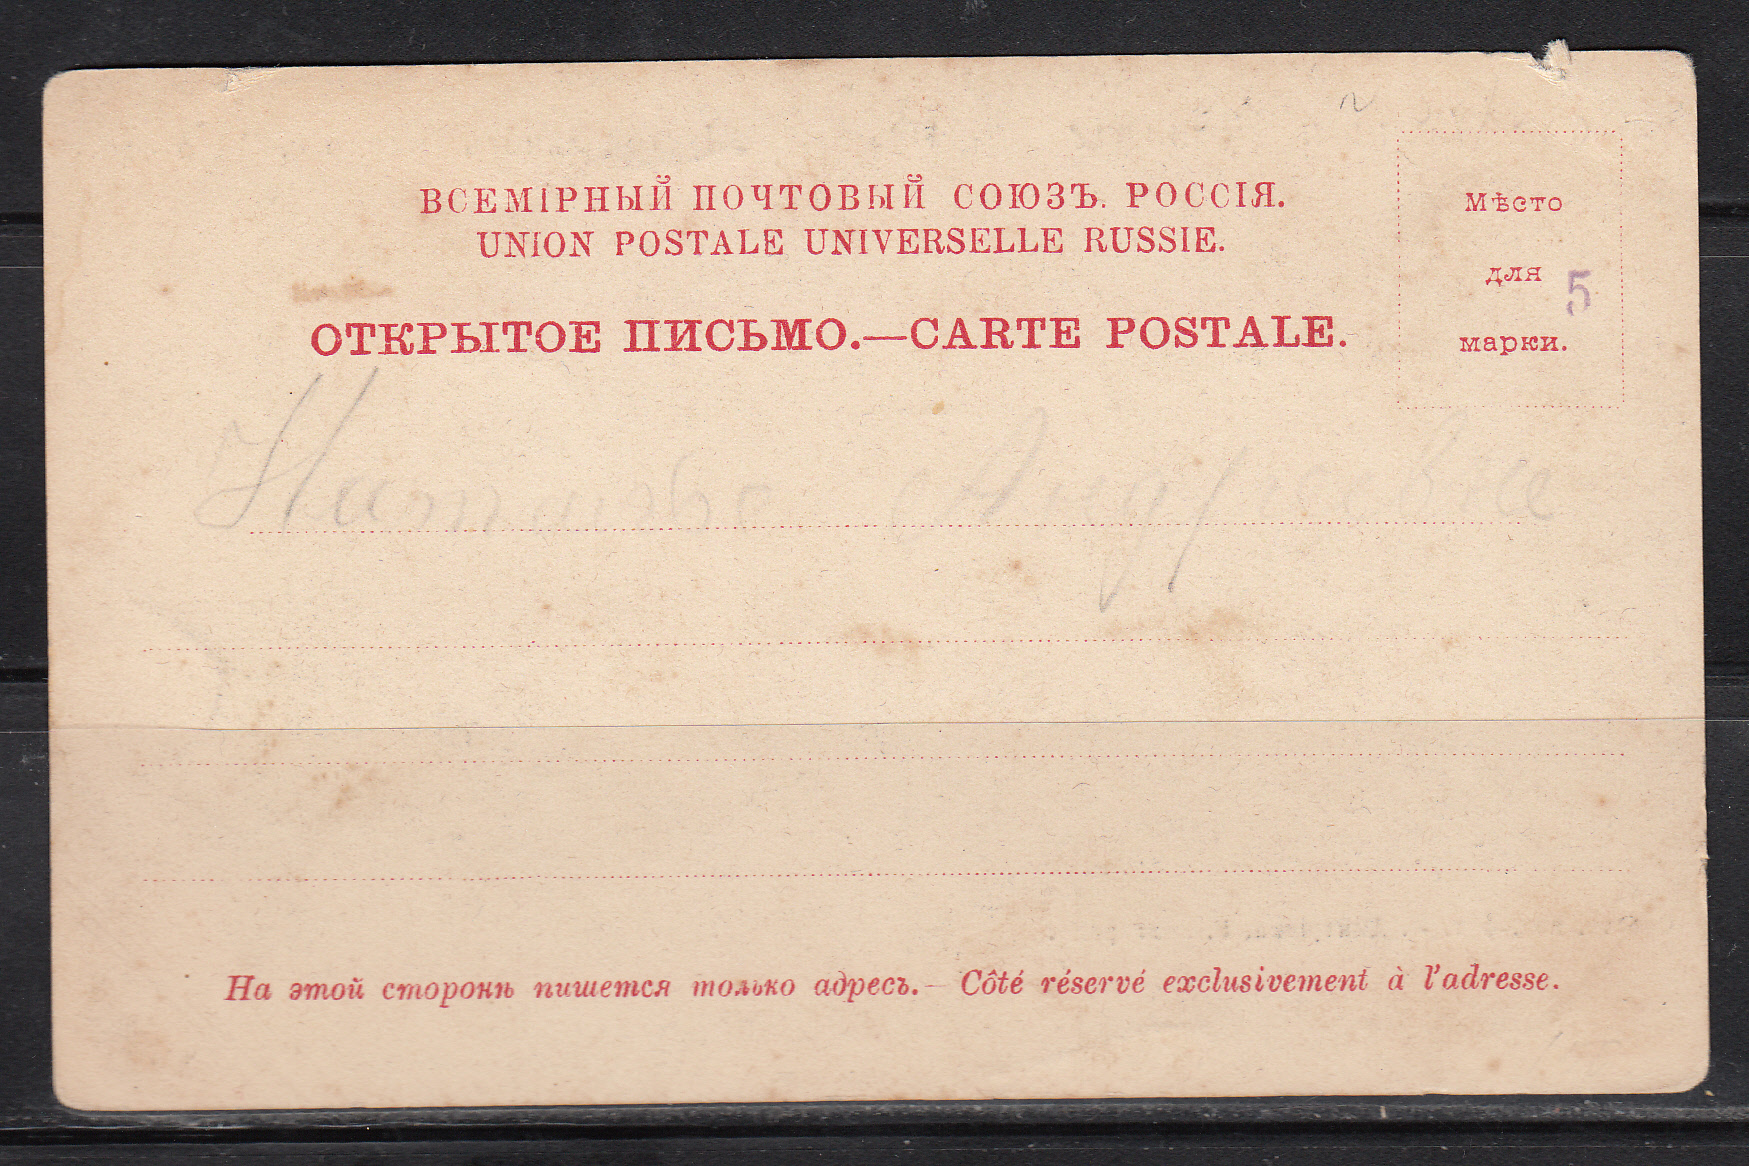 ВСЕМІРНЫЙ ПОЧТОВЫЙ СОЮЗЪ. РОССІЯ.
UNION POSTALE UNIVERSELLE RUSSIE.
ОТКРЫТОЕ ПИСЬМО.—CARTE POSTALE.
Мѣсто
для 5
марки.
Андреевне
На этой сторонѣ пишется только адресъ.— Côté réservé exclusivement à l'adresse.